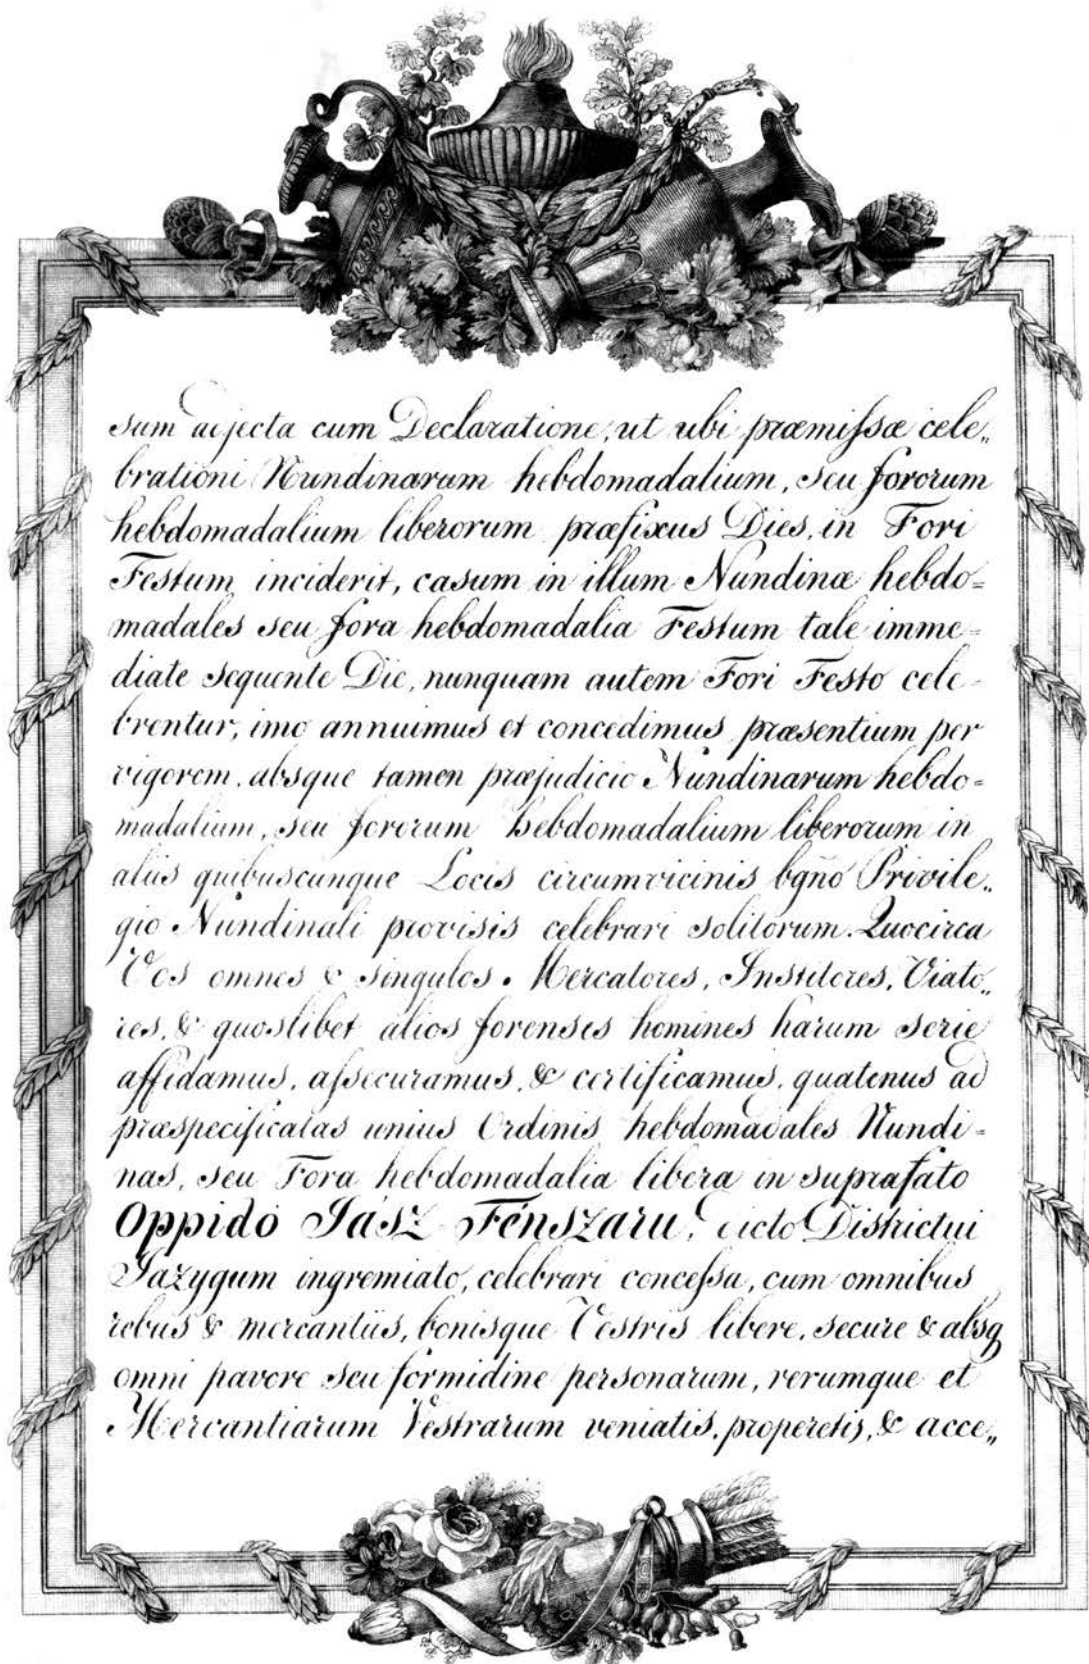 sum adjecta cum Declaratione, ut ubi præmiſsæ cele„
brationi Nundinarum hebdomadalium, seu fororum
hebdomadalium liberorum præfixus Dies, in Fori
Festum inciderit, casum in illum Nundinæ hebdo=
madales seu fora hebdomadalia Festum tale imme=
diate sequente Die, nunquam autem Fori Festo cele-
brentur, imo annuimus et concedimus præsentium per
vigorem, absque tamen præjudicio Nundinarum hebdo=
madalium, seu fororum hebdomadalium liberorum in
aliis quibuscunque Locis circumvicinis bgño Privile„
gio Nundinali provisis celebrari solitorum. Quocirca
Vos omnes & singulos. Mercatores, Institores, Viato„
res, & quoslibet alios forenses homines harum serie
affidamus, aſsecuramus, & certificamus, quatenus ad
præspecificatas unius Ordinis hebdomadales Nundi=
nas, seu Fora hebdomadalia libera in suprafato
Oppido Jász Fénszaru, dicto Districtui
Jazygum ingremiato, celebrari conceſsa, cum omnibus
rebus & mercantiis, bonisque Vestris libere, secure & absq
omni pavore seu formidine personarum, rerumque et
Mercantiarum Vestrarum veniatis, properetis, & acce„